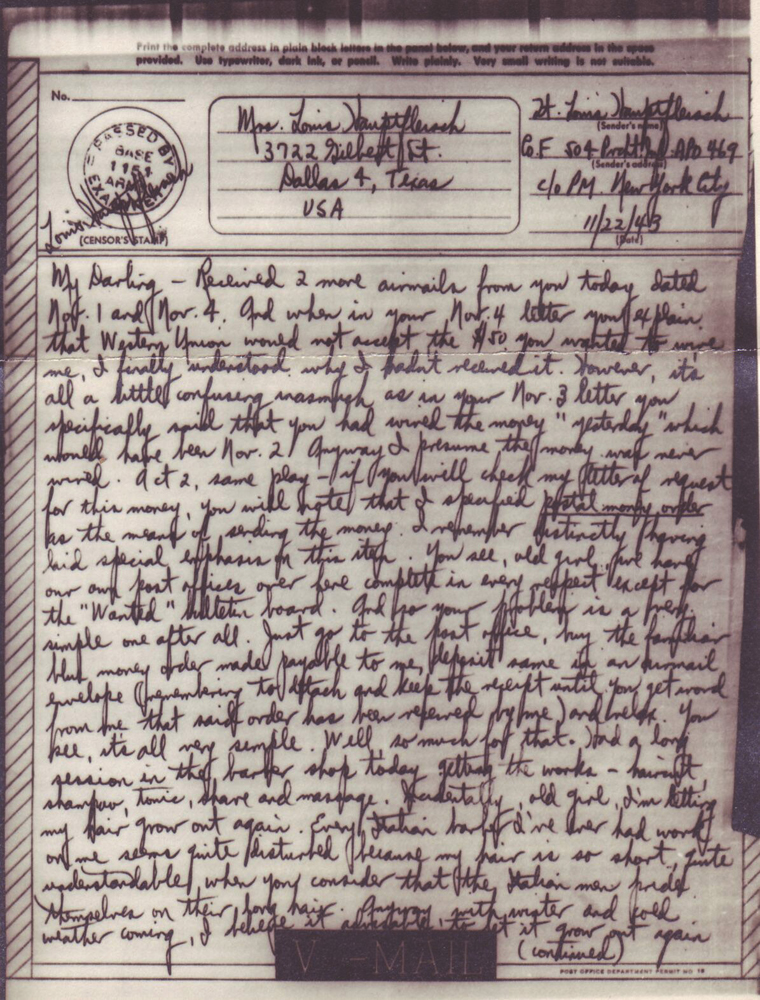 Print the complete address in plain block letters in the panel below, and your return address in the space
provided. Use typewriter, dark ink, or pencil. Write plainly. Very small writing is not suitable.
No.
PASSED BY
BASE
ARMY
EXAMINER
(CENSOR'S STAMP)
Mrs. Louis Hauptfleisch
3722 Gilbert St.
Dallas 4, Texas
USA
Lt. Louis Hauptfleisch
(Sender's name)
Co. F 504 APO 469
(Sender's address)
c/o PM New York City
11/22/43
(Date)
My Darling – Received 2 more airmails from you today dated
Nov. 1 and Nov. 4. And when in your Nov. 4 letter you explain
that Western Union would not accept the $50 you wanted to wire
me, I finally understood why I hadn't received it. However, it's
all a little confusing inasmuch as in your Nov. 3 letter you
specifically said that you had wired the money "yesterday" which
would have been Nov. 2. Anyway I presume the money was never
wired. Act 2, same play – if you will check my letter of request
for this money, you will note that I specified postal money order
as the means of sending the money. I remember distinctly having
laid special emphasis on this item. You see, old girl, we have
our own post offices over here complete in every respect except for
the "Wanted" bulletin board. And so your problem is a very
simple one after all. Just go to the post office, buy the familiar
blue money order made payable to me, deposit same in an airmail
envelope (remembering to detach and keep the receipt until you get word
from me that said order has been received by me) and relax. You
see, it's all very simple. Well, so much for that. Had a long
session in the barber shop today getting the works – haircut,
shampoo, tonic, shave and massage. Incidentally, old girl, I'm letting
my hair grow out again. Every Italian barber I've ever had work
on me seems quite disturbed because my hair is so short, quite
understandable, when you consider that the Italian men pride
themselves on their long hair. Anyway, with winter and cold
weather coming, I believe it advisable to let it grow out again
(continued)
V-MAIL
POST OFFICE DEPARTMENT PERMIT NO. 18